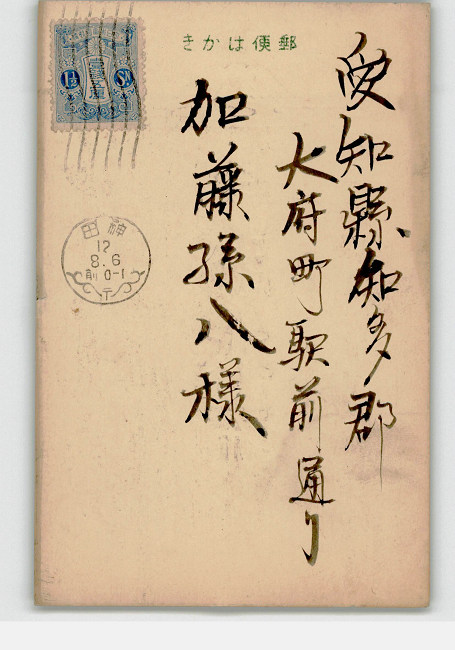 郵便はかき
愛知縣知多郡
大府町駅前通り
加藤孫八様
壹錢五厘
1½ Sn.
神田
12
8.6
前0-1